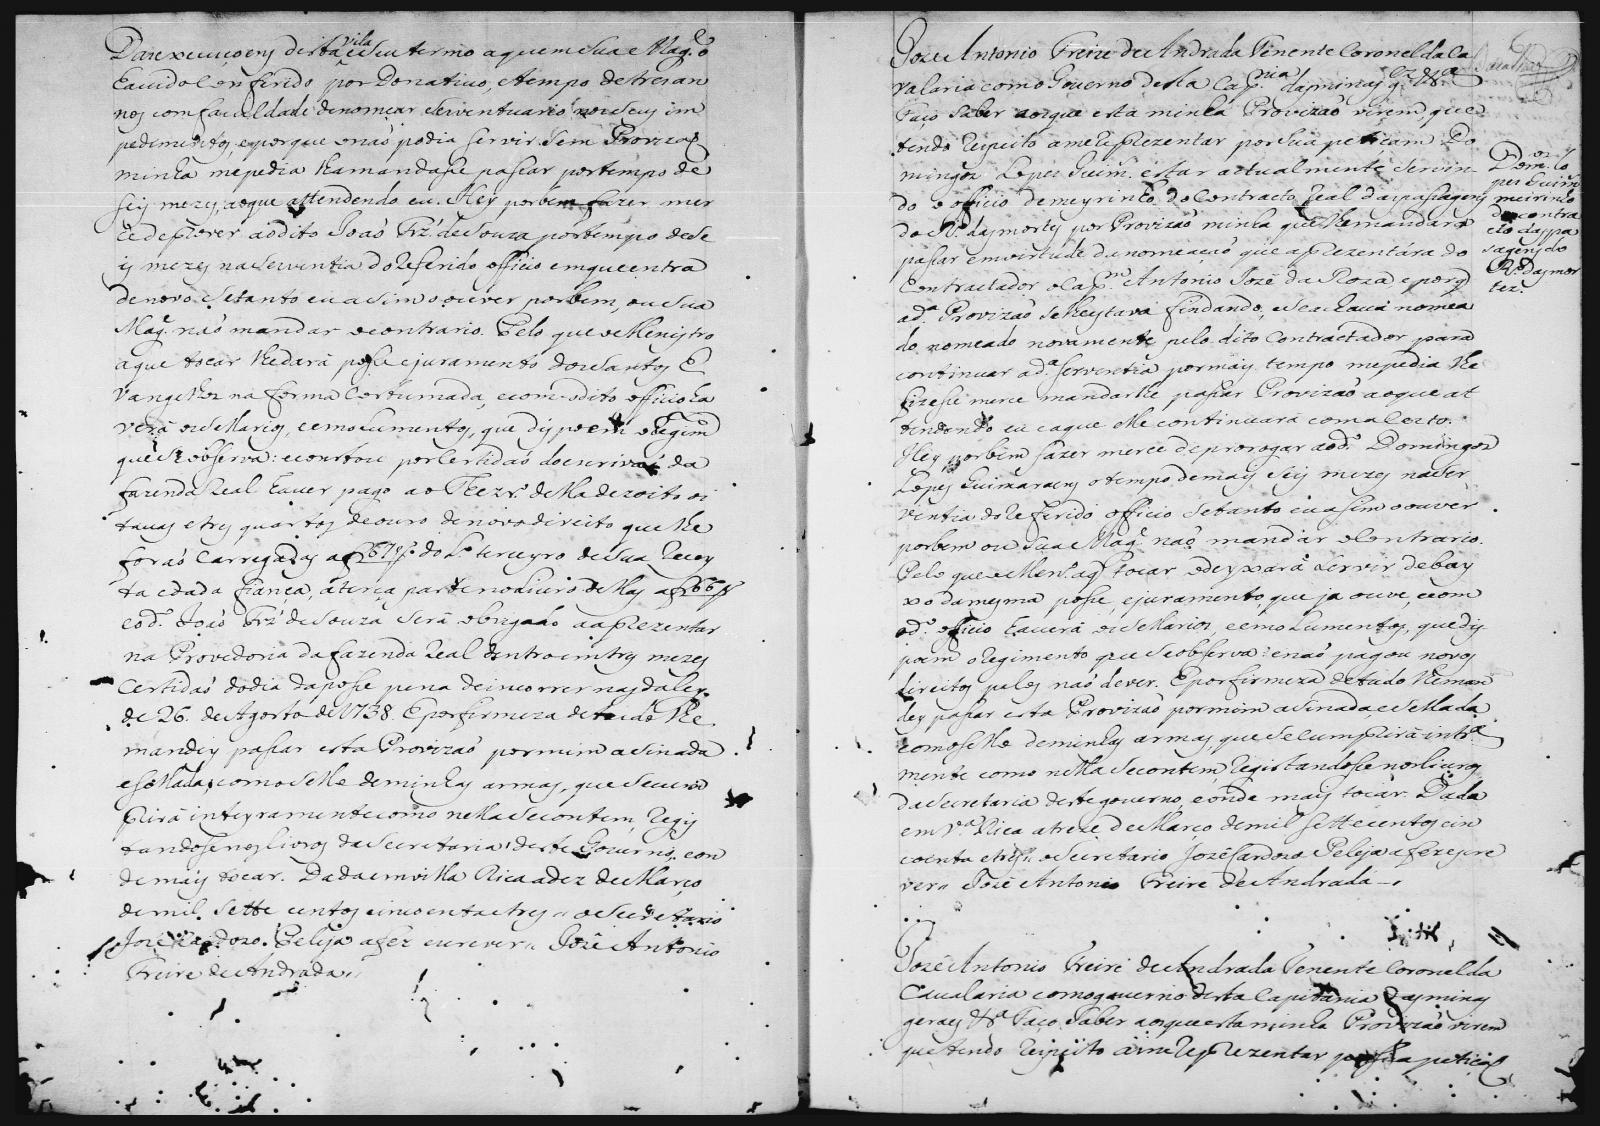 Das execucoens desta villa e Seu termo a quem Sua Mag.e o
havido conferido por Donativo, e tempo de tres an
nos com faculdade de nomear Serventuario nos Seus im
pedimentos, e porque o naõ podia Servir Sem Provizaõ
minha me pedia lhamandase pasar por tempo de
Seis mezes, ao que attendendo eu. Hey por bem fazer mer
ce de prover aõ dito Joaõ Frz' de Souza por tempo de Se
is mezes na Serventia do Referido officio em que entra
de novo. Setanto eu asim o ouver por bem, ou Sua
Mag.e naõ mandar o contrario. Pelo que o Menistro
a que tocar lhe dará pose e juramento dos Santos E
vangelhos na forma Costumada, e com o dito officio ha
verá os Selarios, e emolumentos, que dispoem o Regim.to
que Se observa: e constou por Certidaõ do escrivaõ da
fazenda Real haver pago ao Thezr.o della dezoito oi
tavas e tres quartos de ouro de novo direito que lhe
foraõ Carregadas a f 67 v. do L.o terceyro de Sua Recey
ta e dada fiança, á terça parte no livro dellas a f 66 v
e o d.o Joaõ Frz' de Souza Será obrigado a aprezentar
na Provedoria da fazenda Real dentro em tres mezes
Certidaõ do dia da pose pena de incorrer nas da ley
de 26. de Agosto de 1738. E por firmeza de tudo lhe
mandey pasar esta Provizaõ por mim asinada
e Sellada, como Sello de minhas armas, que Se cum
pirá inteyramente como nella Se contem, Regis
tandose nos livros da Secretaria deste Governo, e on
de mais tocar. Dada em villa Rica a dez de Março
de mil Sette centos cincoenta e tres // o Secretario
José Cardozo Peleja a fez escrever // José Antonio
Freire de Andrada //
Jozé Antonio Freire de Andrada Tenente Coronel da Ca
valaria como Governo desta Cap.nia das minas g.es &.a
Faço Saber aos que esta minha Provizaõ virem, que
tendo Respeito a me Reprezentar por Sua peticam Do
mingos Lopes Guim. estar actualmente Servin
do o officio de meyrinho do Contracto Real das pasagens
do R.o das mortes por Provizaõ minha que lhe mandara
pasar em virtude da nomeacaõ que aprezentára do
Contractador o Cap.m Antonio Jozé da Roza e porq
a d.a Provizaõ Se lhe estava findando, e Se achava nomea
do nomeado novamente pelo dito Contractador para
continuar a d.a Serventia por mais tempo me pedia lhe
fizese merce mandarlhe pasar Provizaõ ao que at
tendendo eu e a que lhe continuará com acerto.
Hey por bem fazer merce de prorogar ao d.o Domingos
Lopes Guimaraens o tempo de mais Seis mezes na Ser
ventia do Referido officio Setanto eu asim o ouver
por bem ou Sua Mag.e naõ mandar o Contrario.
Pelo que o Men.o a q tocar o deyxará Servir debay
xo da mesma pose, e juramento, que ja ouve, e com
o d.o officio haverá os Selarios, e emolumentos, que dis
poem o Regimento que Se observa: e naõ pagou novos
direitos pelos naõ dever. E por firmeza de tudo lhe man
dey pasar esta Provizaõ por mim asinada, e Sellada
como Sello de minhas armas, que Se cumpirá intr.a
mente como nella Se contem, Registandose nos livros
da Secretaria deste governo, e onde mais tocar. Dada
em V.a Rica a treze de Março de mil Sette centos cin
coenta e tres // o Secretario Jozé Cardozo Peleja a fez escre
ver // Jozé Antonio Freire de Andrada //
Dom.os Lo
pes Guim
meirinho
do contra
cto das pa
sagens do
R.o das mor
tes.
Jozé Antonio Freire de Andrada Tenente Coronel da
Cavalaria como governo desta Capitania das minas
geraes &.a Faço Saber aos que esta minha Provizaõ virem
que tendo Respeito a me Reprezentar por Sua petiçaõ